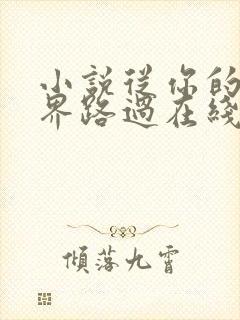 小說從你的
界路過在綫
傾落九霄